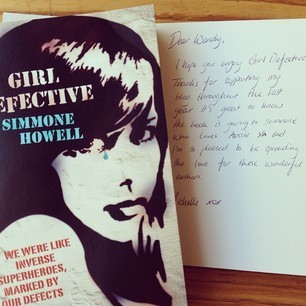 GIRL
DEFECTIVE
SIMMONE
HOWELL
WE WERE LIKE
INVERSE
SUPERHEROES,
MARKED BY
OUR DEFECTS
Dear Wendy,
I hope you enjoy Girl Defective
Thanks for supporting my
blog throughout the last
year it's great to know
the book is going to someone
who loves Aussie YA and
I'm so pleased to be spreading
the love for these wonderful
authors.
Michelle xox